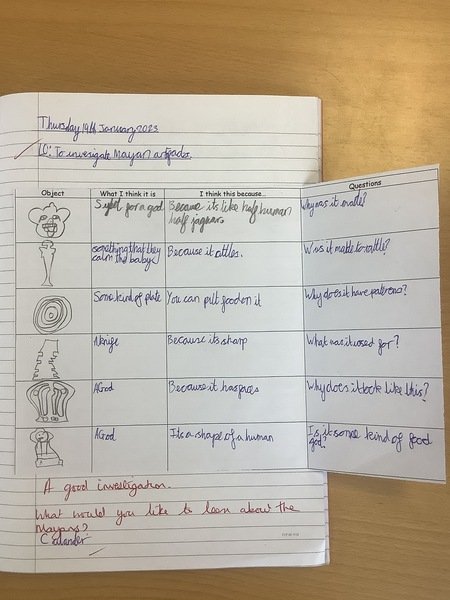 Thursday 19th January 2023
LO: To investigate Mayan artifacts.
Object
What I think it is
I think this because...
Questions
for a god
Because its like half human
half jaguars
why was it made?
something that they
calm the babys
Because it rattles.
Was it made to rattle?
Some kind of plate
You can put food on it
Why does it have patterns?
A knife
Because its sharp
What was it used for?
A God
Because it has faces
Why does it look like this?
A God
Its a shape of a human
Is it some kind of food
god?
A good investigation.
What would you like to learn about the
Mayans?
Calander